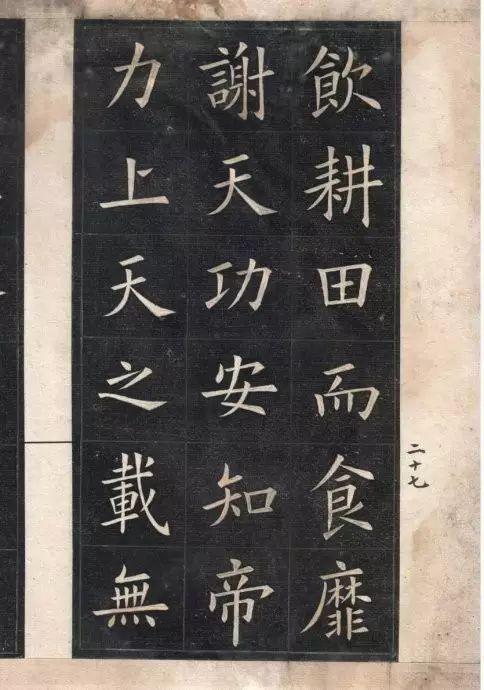 飲耕田而食靡
謝天功安知帝
力上天之載無
二十七